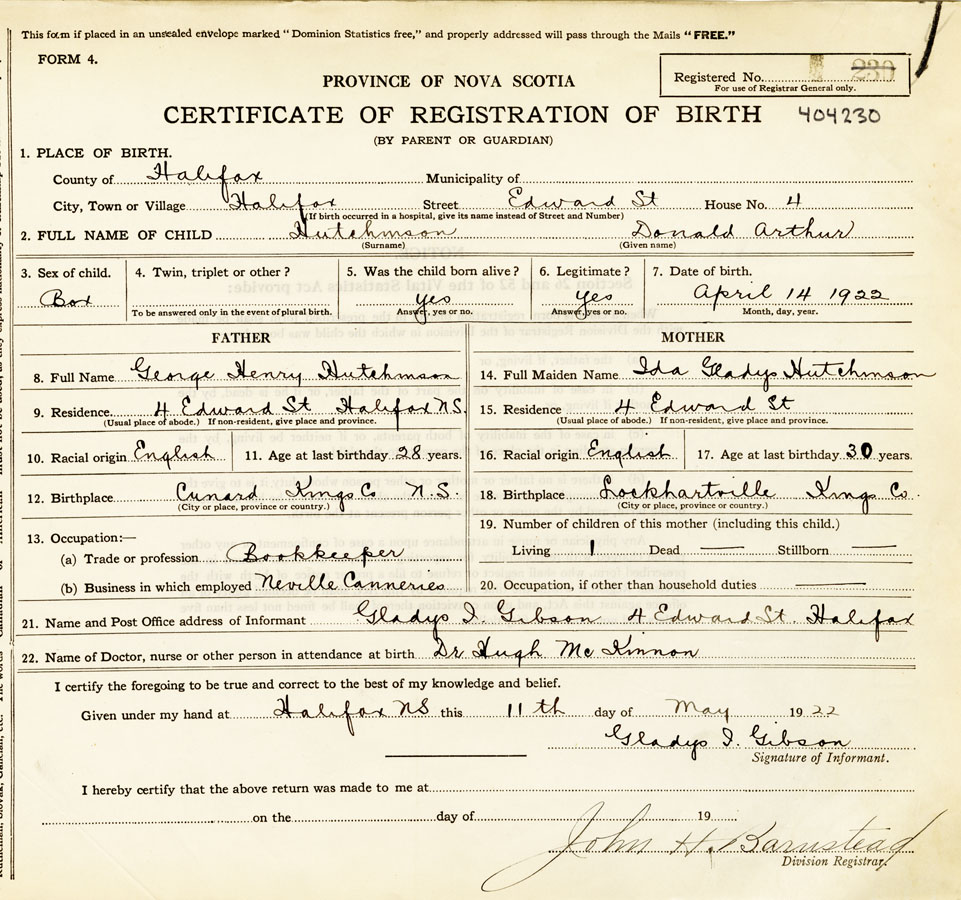 This form if placed in an unsealed envelope marked "Dominion Statistics free," and properly addressed will pass through the Mails "FREE."
FORM 4.
Registered No. 230
For use of Registrar General only.
PROVINCE OF NOVA SCOTIA
CERTIFICATE OF REGISTRATION OF BIRTH 404230
(BY PARENT OR GUARDIAN)
1. PLACE OF BIRTH.
County of Halifax Municipality of
City, Town or Village Halifax Street Edward St House No. 4
(If birth occurred in a hospital, give its name instead of Street and Number)
2. FULL NAME OF CHILD Hutchinson Donald Arthur
(Surname) (Given name)
3. Sex of child. 4. Twin, triplet or other? 5. Was the child born alive? 6. Legitimate? 7. Date of birth.
Boy yes Yes April 14 1922
To be answered only in the event of plural birth. Answer, yes or no. Answer, yes or no. Month, day, year.
FATHER MOTHER
8. Full Name George Henry Hutchinson 14. Full Maiden Name Ida Gladys Hutchinson
9. Residence 4 Edward St Halifax N.S. 15. Residence 4 Edward St
(Usual place of abode.) If non-resident, give place and province. (Usual place of abode.) If non-resident, give place and province.
10. Racial origin English 11. Age at last birthday 28 years. 16. Racial origin English 17. Age at last birthday 30 years.
12. Birthplace Cunard Kings Co N.S. 18. Birthplace Lockhartville Kings Co.
(City or place, province or country.) (City or place, province or country.)
13. Occupation:— 19. Number of children of this mother (including this child.)
(a) Trade or profession Bookkeeper Living 1 Dead — Stillborn —
(b) Business in which employed Neville Canneries 20. Occupation, if other than household duties —
21. Name and Post Office address of Informant Gladys I. Gibson 4 Edward St. Halifax
22. Name of Doctor, nurse or other person in attendance at birth Dr Hugh McKinnon
I certify the foregoing to be true and correct to the best of my knowledge and belief.
Given under my hand at Halifax NS this 11th day of May 1922
Gladys I. Gibson
Signature of Informant.
I hereby certify that the above return was made to me at
on the day of 19
John H. Barnstead
Division Registrar.